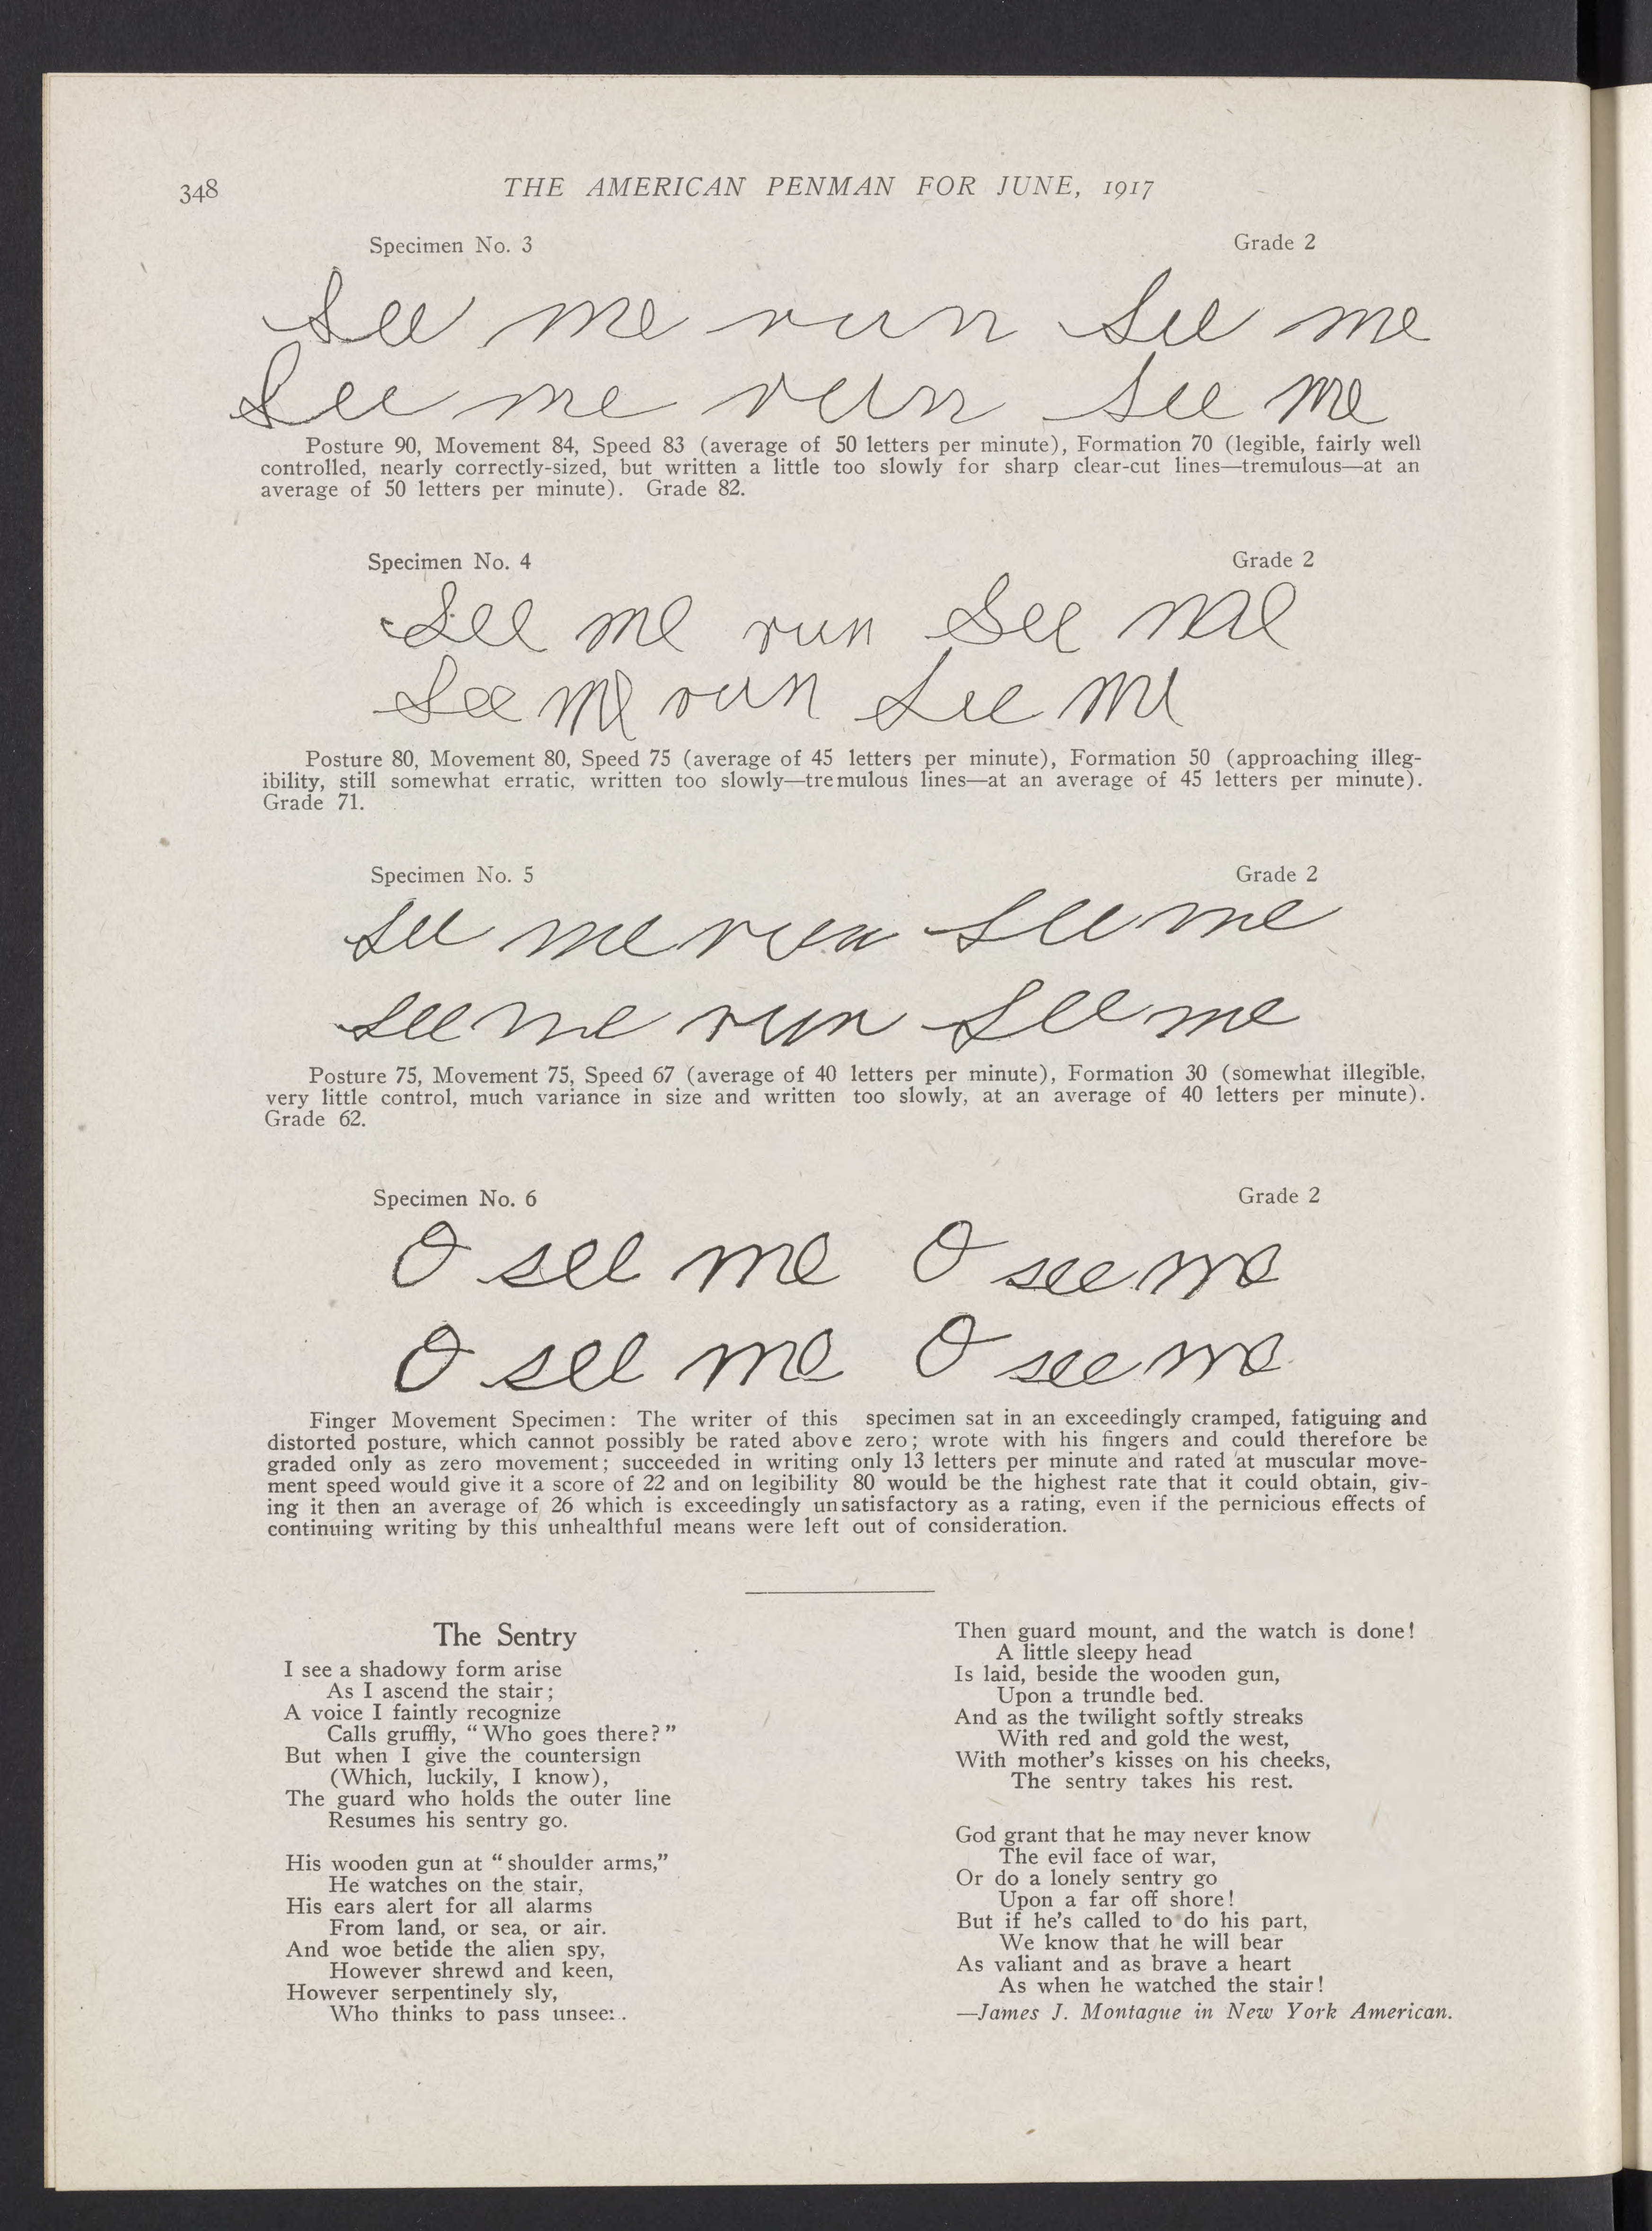 348
THE AMERICAN PENMAN FOR JUNE, 1917
Specimen No. 3 Grade 2
See me run See me
See me run See me
Posture 90, Movement 84, Speed 83 (average of 50 letters per minute), Formation 70 (legible, fairly well
controlled, nearly correctly-sized, but written a little too slowly for sharp clear-cut lines—tremulous—at an
average of 50 letters per minute). Grade 82.
Specimen No. 4 Grade 2
See me run See me
See me run See me
Posture 80, Movement 80, Speed 75 (average of 45 letters per minute), Formation 50 (approaching illeg-
ibility, still somewhat erratic, written too slowly—tremulous lines—at an average of 45 letters per minute).
Grade 71.
Specimen No. 5 Grade 2
See me run See me
See me run See me
Posture 75, Movement 75, Speed 67 (average of 40 letters per minute), Formation 30 (somewhat illegible,
very little control, much variance in size and written too slowly, at an average of 40 letters per minute).
Grade 62.
Specimen No. 6 Grade 2
O see me O see me
O see me O see me
Finger Movement Specimen: The writer of this specimen sat in an exceedingly cramped, fatiguing and
distorted posture, which cannot possibly be rated above zero; wrote with his fingers and could therefore be
graded only as zero movement; succeeded in writing only 13 letters per minute and rated at muscular move-
ment speed would give it a score of 22 and on legibility 80 would be the highest rate that it could obtain, giv-
ing it then an average of 26 which is exceedingly unsatisfactory as a rating, even if the pernicious effects of
continuing writing by this unhealthful means were left out of consideration.
The Sentry
I see a shadowy form arise
As I ascend the stair;
A voice I faintly recognize
Calls gruffly, "Who goes there?"
But when I give the countersign
(Which, luckily, I know),
The guard who holds the outer line
Resumes his sentry go.
His wooden gun at "shoulder arms,"
He watches on the stair,
His ears alert for all alarms
From land, or sea, or air.
And woe betide the alien spy,
However shrewd and keen,
However serpentinely sly,
Who thinks to pass unseen.
Then guard mount, and the watch is done!
A little sleepy head
Is laid, beside the wooden gun,
Upon a trundle bed.
And as the twilight softly streaks
With red and gold the west,
With mother's kisses on his cheeks,
The sentry takes his rest.
God grant that he may never know
The evil face of war,
Or do a lonely sentry go
Upon a far off shore!
But if he's called to do his part,
We know that he will bear
As valiant and as brave a heart
As when he watched the stair!
—James J. Montague in New York American.